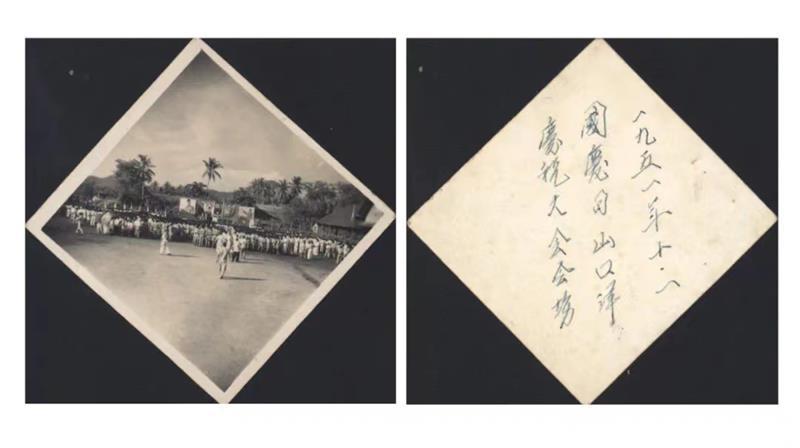 一九五一年十.一
國慶日山口洋
慶祝大会会場